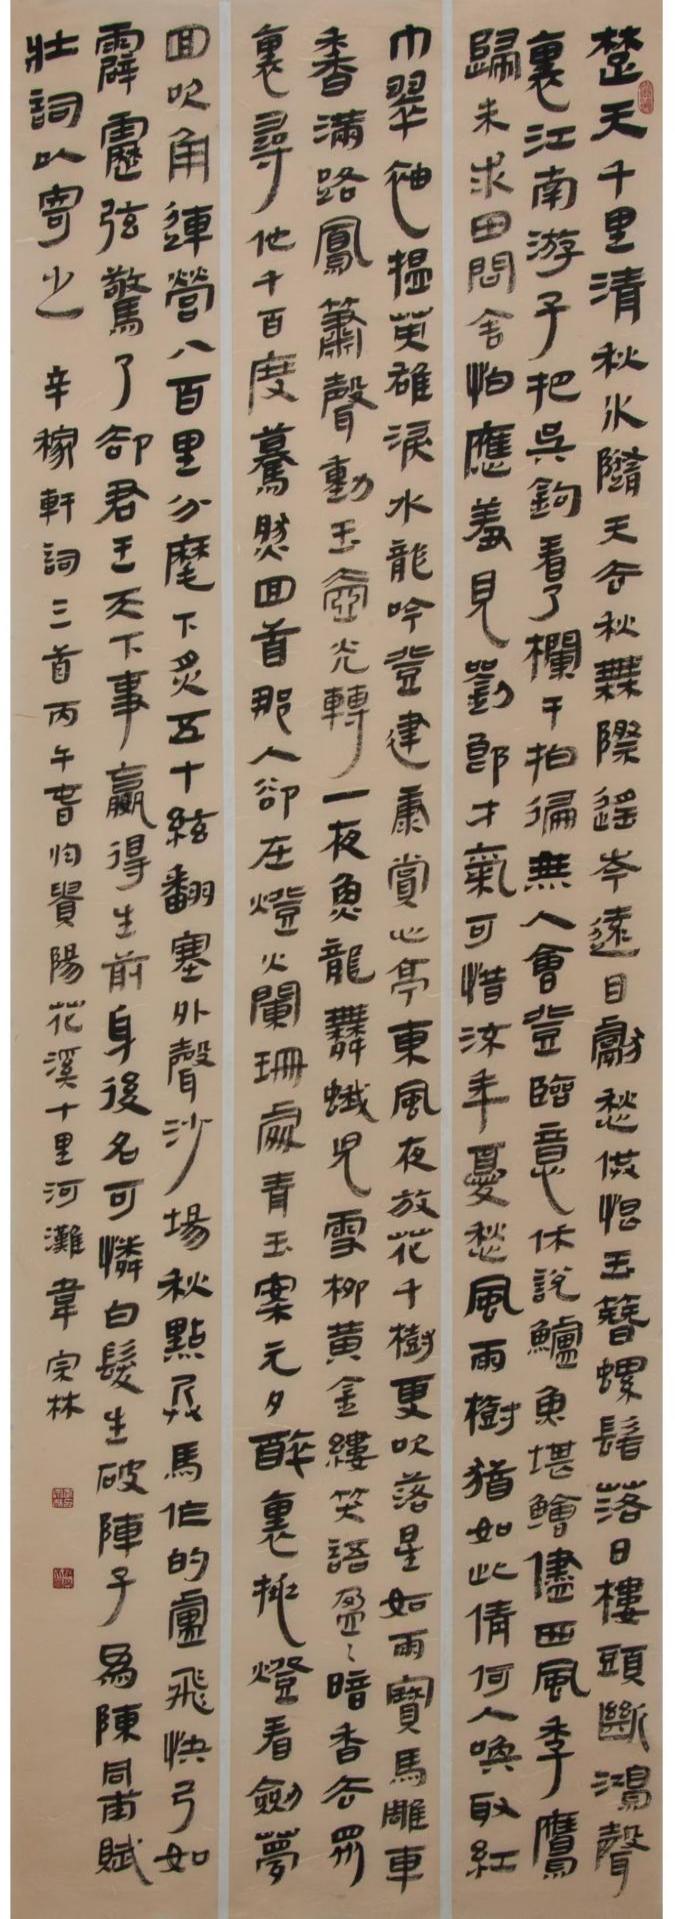 楚天千里清秋水隨天去秋無際遙岑遠目獻愁供恨玉簪螺髻落日樓頭斷鴻聲
裏江南游子把吳鉤看了欄干拍徧無人會登臨意休說鱸魚堪鱠儘西風季鷹
歸未求田問舍怕應羞見劉郎才氣可惜流年憂愁風雨樹猶如此倩何人喚取紅
巾翠袖揾英雄淚水龍吟登建康賞心亭東風夜放花千樹更吹落星如雨寶馬雕車
香滿路鳳簫聲動玉壺光轉一夜魚龍舞蛾兒雪柳黃金縷笑語盈〻暗香去眾
裏尋他千百度驀然回首那人卻在燈火闌珊處青玉案元夕醉裏挑燈看劍夢
回吹角連營八百里分麾下炙五十絃翻塞外聲沙場秋點兵馬作的盧飛快弓如
霹靂弦驚了卻君王天下事贏得生前身後名可憐白髮生破陣子為陳同甫賦
壯詞以寄之 辛稼軒詞三首丙午春貴陽花溪十里河灘韋宗林